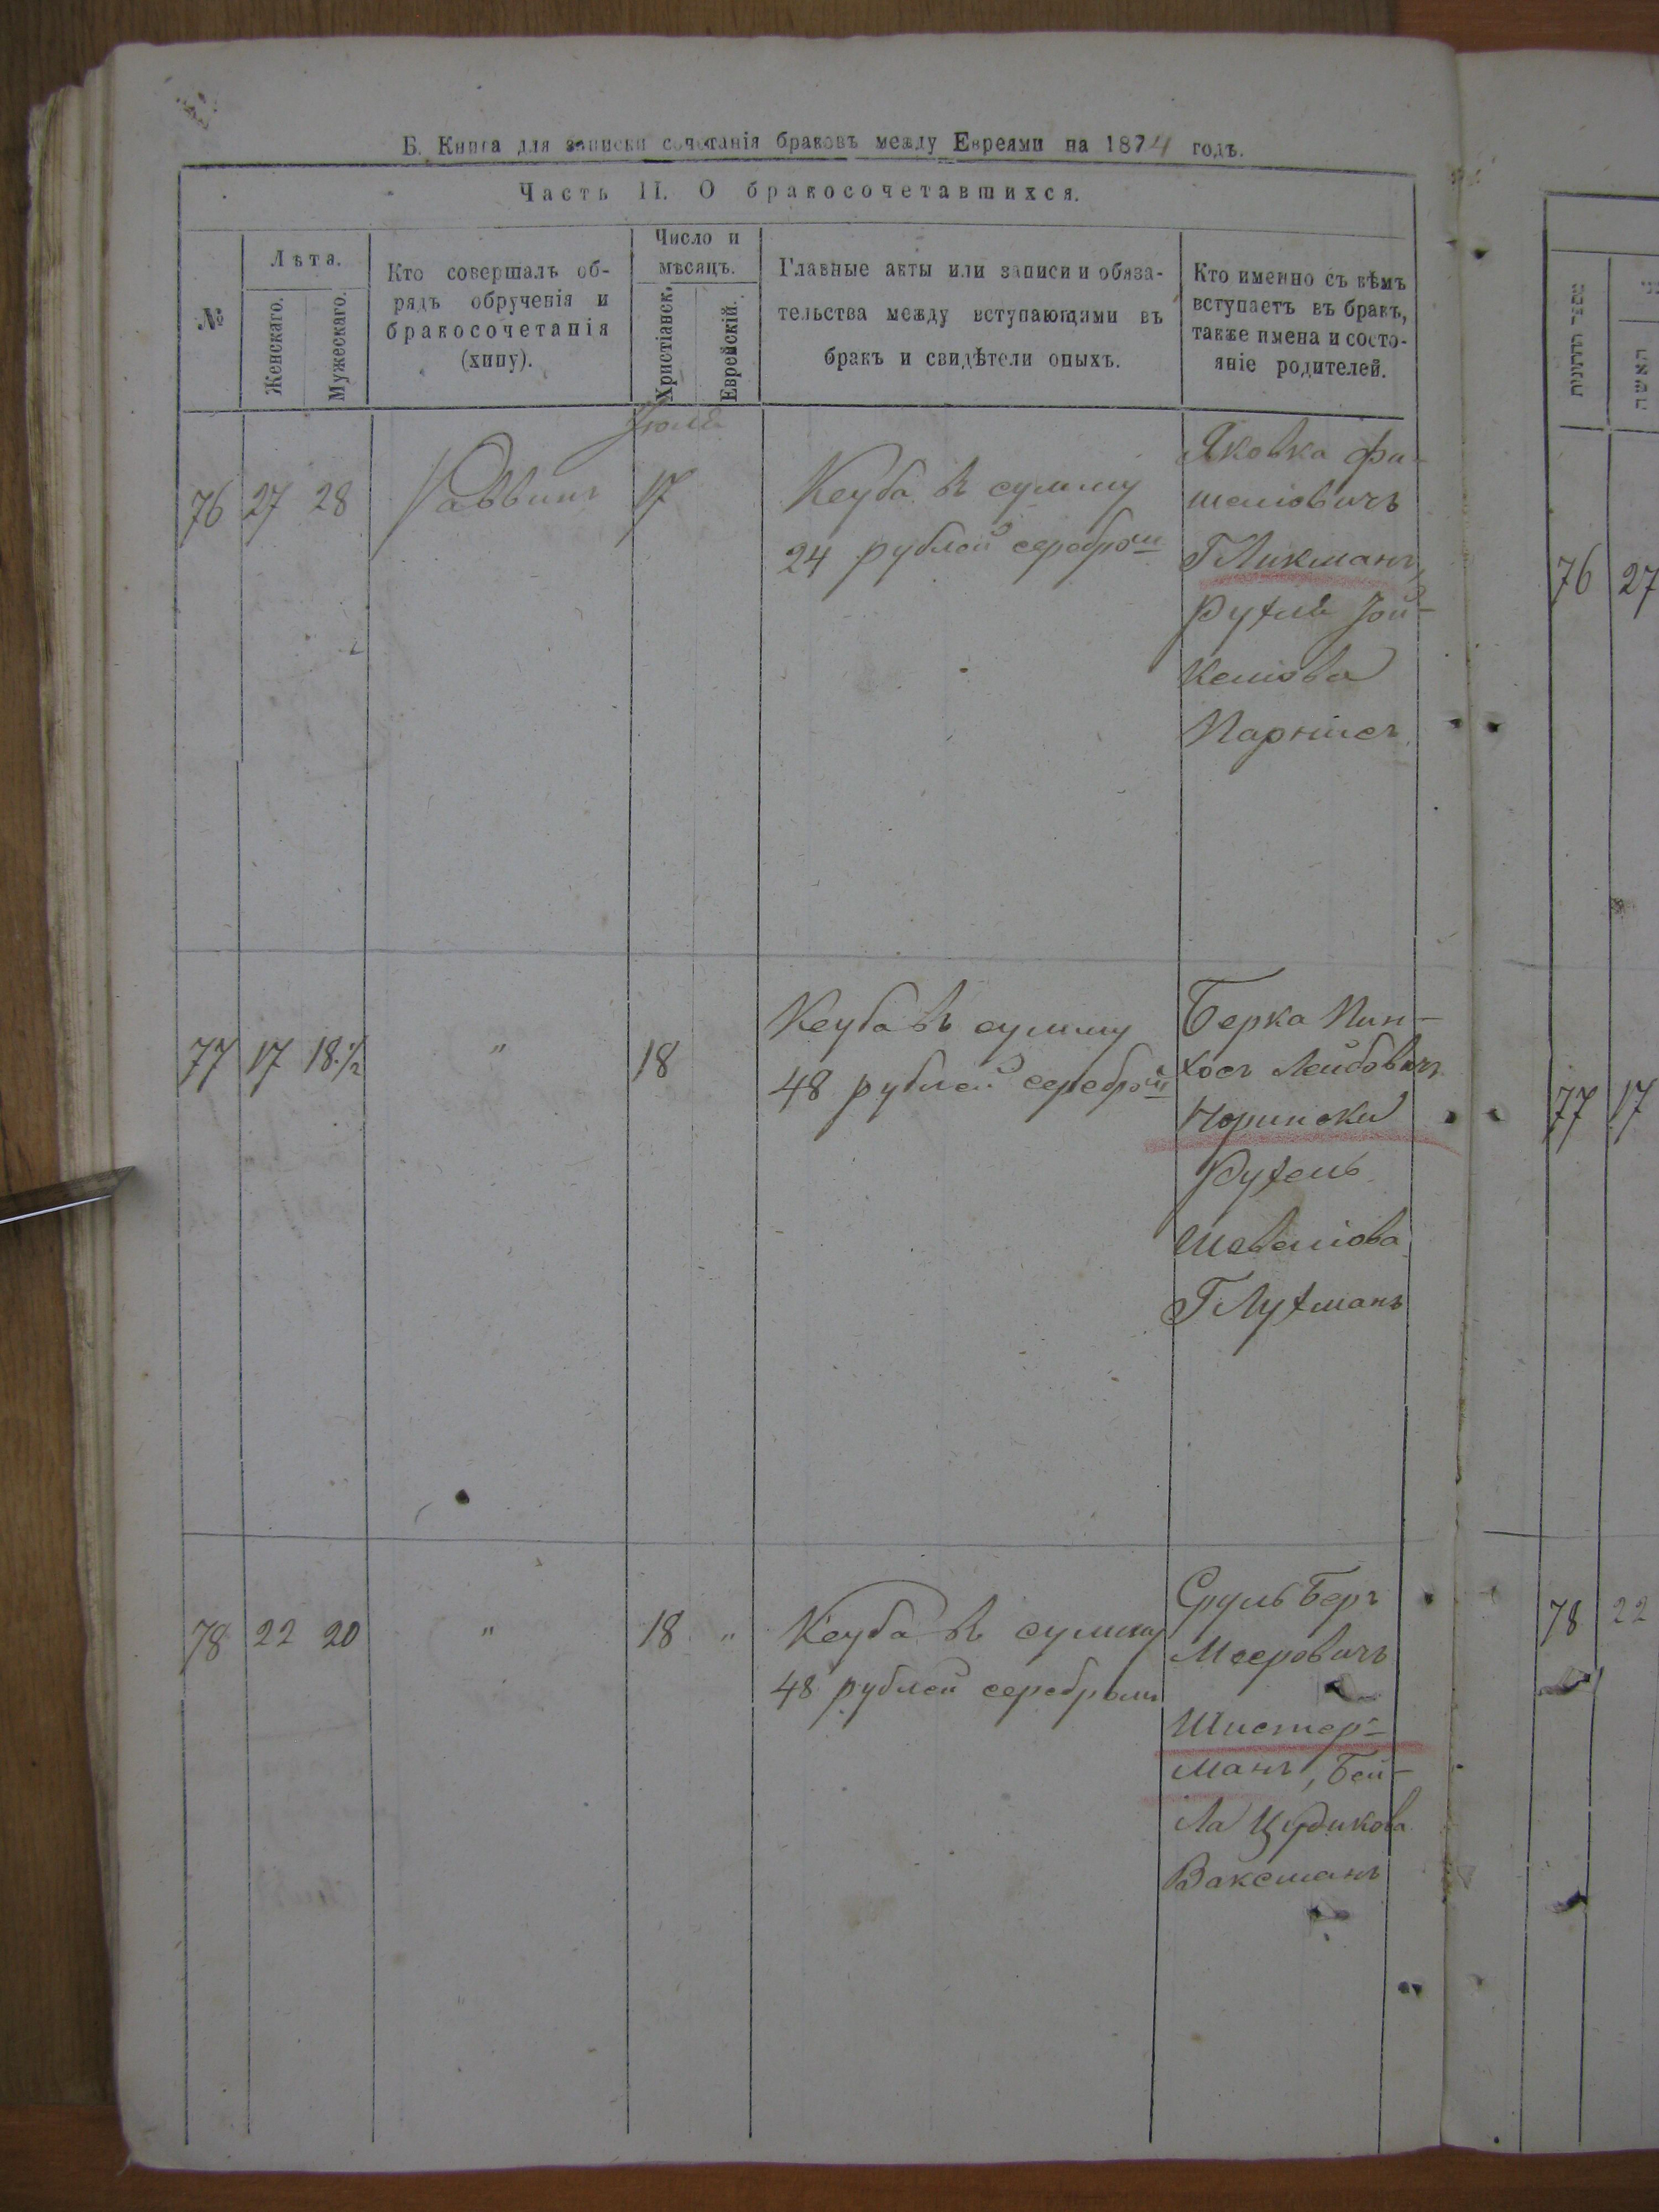 Б. Книга для записки сочетанія браковъ между Евреями на 1874 годъ.
Часть II. О бракосочетавшихся.
№
Лѣта.
Женскаго.
Мужескаго.
Кто совершалъ об-
рядъ обрученія и
бракосочетанія
(хипу).
Число и
мѣсяцъ.
Христіанск.
Еврейскій.
Главные акты или записи и обяза-
тельства между вступающими въ
бракъ и свидѣтели оныхъ.
Кто именно съ кѣмъ
вступаетъ въ бракъ,
также имена и состо-
яніе родителей.
Іюля
76 27 28 Раввинъ 17
Кеуба въ сумму
24 рублей серебромъ
Яковка Фи-
шеліовичъ
Гликманъ,
Рухля Іой-
келіова
Парнісъ
77 17 18½ " 18
Кеуба въ сумму
48 рублей серебромъ
Берка Пин-
хосъ Лейбовичъ
Норински
Рухель
Шевеліова
Глухманъ
78 22 20 " 18 "
Кеуба въ сумму
48 рублей серебромъ
Сруль Беръ
Мееровичъ
Шистер-
манъ, Бей-
ла Цудикова
Ваксманъ
מספר החתונות
האשה
76 27
77 17
78 22